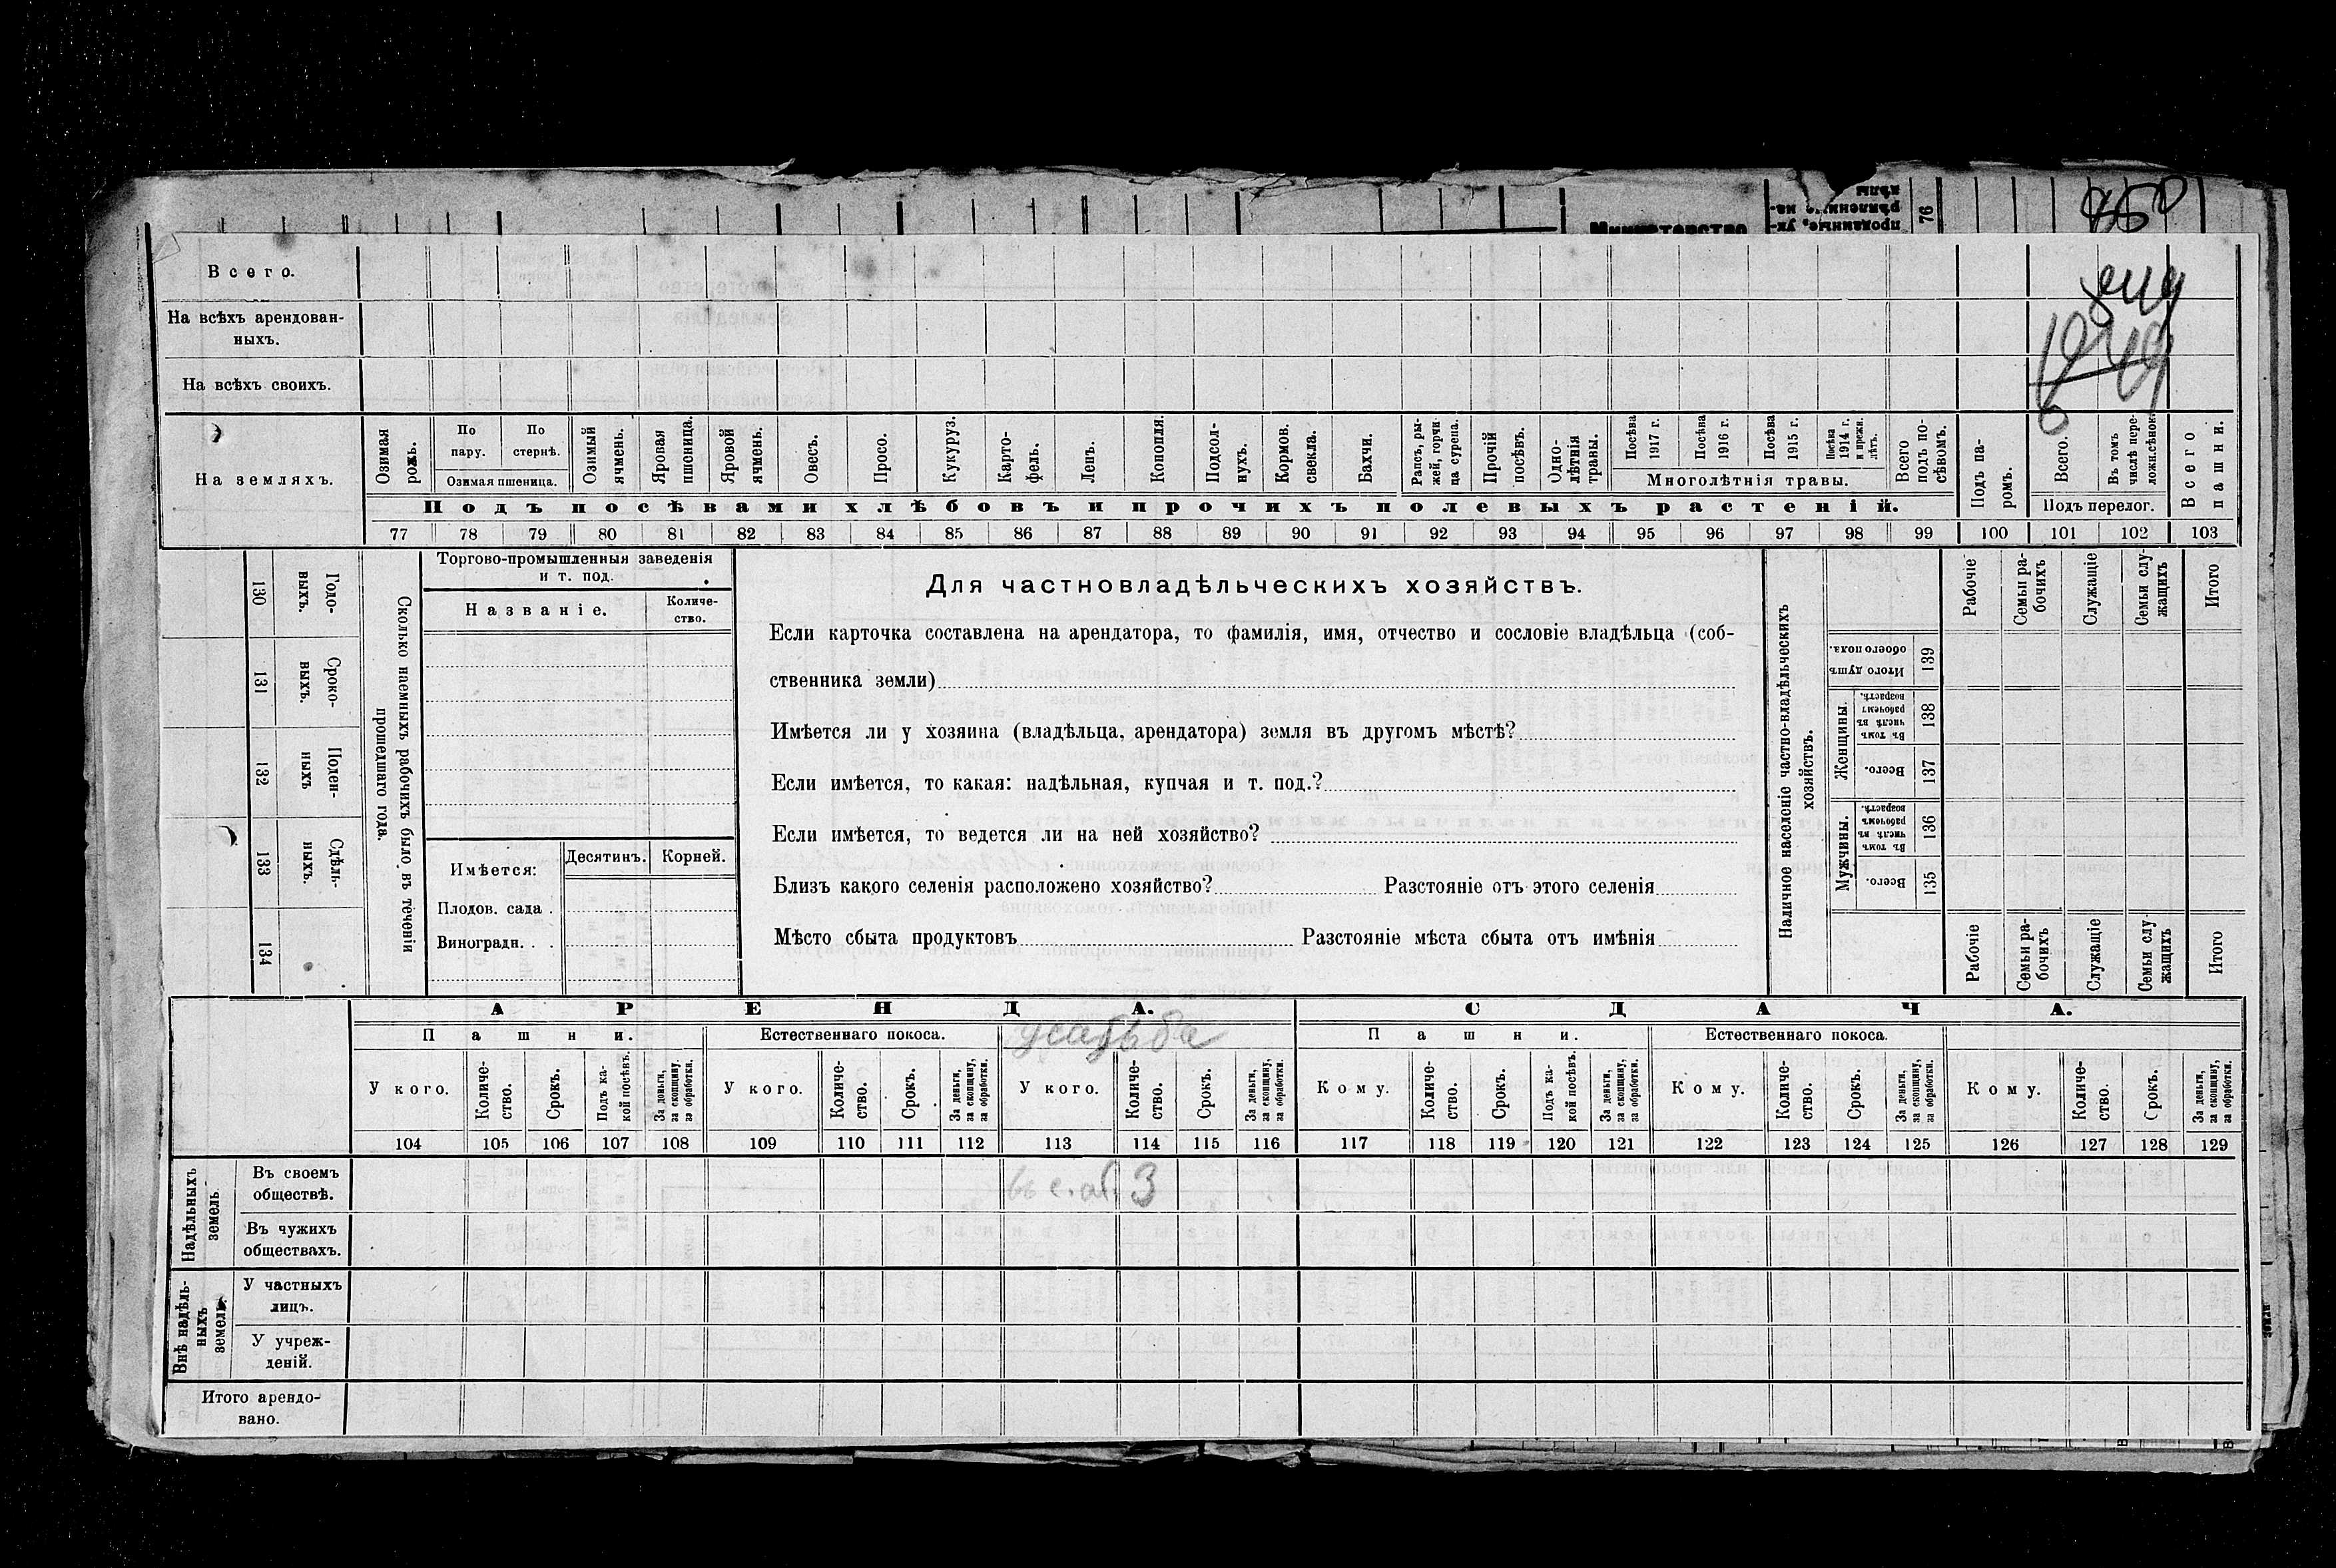 Министерство
проданные, ук-
76
Всего.
На всѣхъ арендован-
ныхъ.
На всѣхъ своихъ.
На земляхъ.
Озимая рожь.
По пару.
По стернѣ.
Озимая пшеница.
Озимый ячмень.
Яровая пшеница.
Яровой ячмень.
Овесъ.
Просо.
Кукуруз.
Карто-
фель.
Ленъ.
Конопля.
Подсол-
нухъ.
Кормов. свекла.
Бахчи.
Рапсъ, ры-
жей, горчи-
ца сурепа.
Прочій посѣвъ.
Одно-
лѣтнія травы.
Посѣва 1917 г.
Посѣва 1916 г.
Посѣва 1915 г.
Посѣва 1914 г. и прежн. лѣтъ.
Многолѣтнія травы.
Всего подъ по-
сѣвомъ.
Подъ па-
ромъ.
Всего.
Въ томъ числѣ пере-
ложн.сѣнок.
Подъ перелог.
Всего пашни.
Подъ посѣвами хлѣбовъ и прочихъ полевыхъ растеній.
77 78 79 80 81 82 83 84 85 86 87 88 89 90 91 92 93 94 95 96 97 98 99 100 101 102 103
130 Годо-
выхъ.
131 Сроко-
выхъ.
132 Поден-
ныхъ
133 Сдѣль-
ныхъ.
134
Сколько наемныхъ рабочихъ было въ теченіи
прошедшаго года.
Торгово-промышленныя заведенія
и т. под.
Названіе.
Количе-
ство.
Имѣется:
Десятинъ.
Корней.
Плодов. сада .
Виноградн. . .
Для частновладѣльческихъ хозяйствъ.
Если карточка составлена на арендатора, то фамилія, имя, отчество и сословіе владѣльца (соб-
ственника земли)
Имѣется ли у хозяина (владѣльца, арендатора) земля въ другомъ мѣстѣ?
Если имѣется, то какая: надѣльная, купчая и т. под.?
Если имѣется, то ведется ли на ней хозяйство?
Близъ какого селенія расположено хозяйство? Разстояніе отъ этого селенія
Мѣсто сбыта продуктовъ Разстояніе мѣста сбыта отъ имѣнія
Наличное населеніе частно-владѣльческихъ
хозяйствъ.
Рабочіе
Семьи ра-
бочихъ
Служащіе
Семьи слу-
жащихъ
Итого
Итого душъ обоего пола. 139
Женщины.
Въ томъ числѣ въ рабочемъ возрастѣ. 138
Всего. 137
Мужчины.
Въ томъ числѣ въ рабочемъ возрастѣ. 136
Всего. 135
Рабочіе
Семьи ра-
бочихъ
Служащіе
Семьи слу-
жащихъ
Итого
АРЕНДА.
СДАЧА.
Пашни.
Естественнаго покоса.
усадьба
Пашни.
Естественнаго покоса.
У кого.
Количе-
ство.
Срокъ.
Подъ ка-
кой посѣвъ.
За деньги, за скопщину, за обработки.
У кого.
Количе-
ство.
Срокъ.
За деньги, за скопщину, за обработки.
У кого.
Количе-
ство.
Срокъ.
За деньги, за скопщину, за обработки.
Кому.
Количе-
ство.
Срокъ.
Подъ ка-
кой посѣвъ.
За деньги, за скопщину, за обработки.
Кому.
Количе-
ство.
Срокъ.
За деньги, за скопщину, за обработки.
Кому.
Количе-
ство.
Срокъ.
За деньги, за скопщину, за обработки.
104 105 106 107 108 109 110 111 112 113 114 115 116 117 118 119 120 121 122 123 124 125 126 127 128 129
Надѣльныхъ земель
Въ своемъ
обществѣ.
въ с. об. 3
Въ чужихъ
обществахъ.
Внѣ надѣль-
ныхъ земель.
У частныхъ
лицъ.
У учреж-
деній.
Итого арендо-
вано.